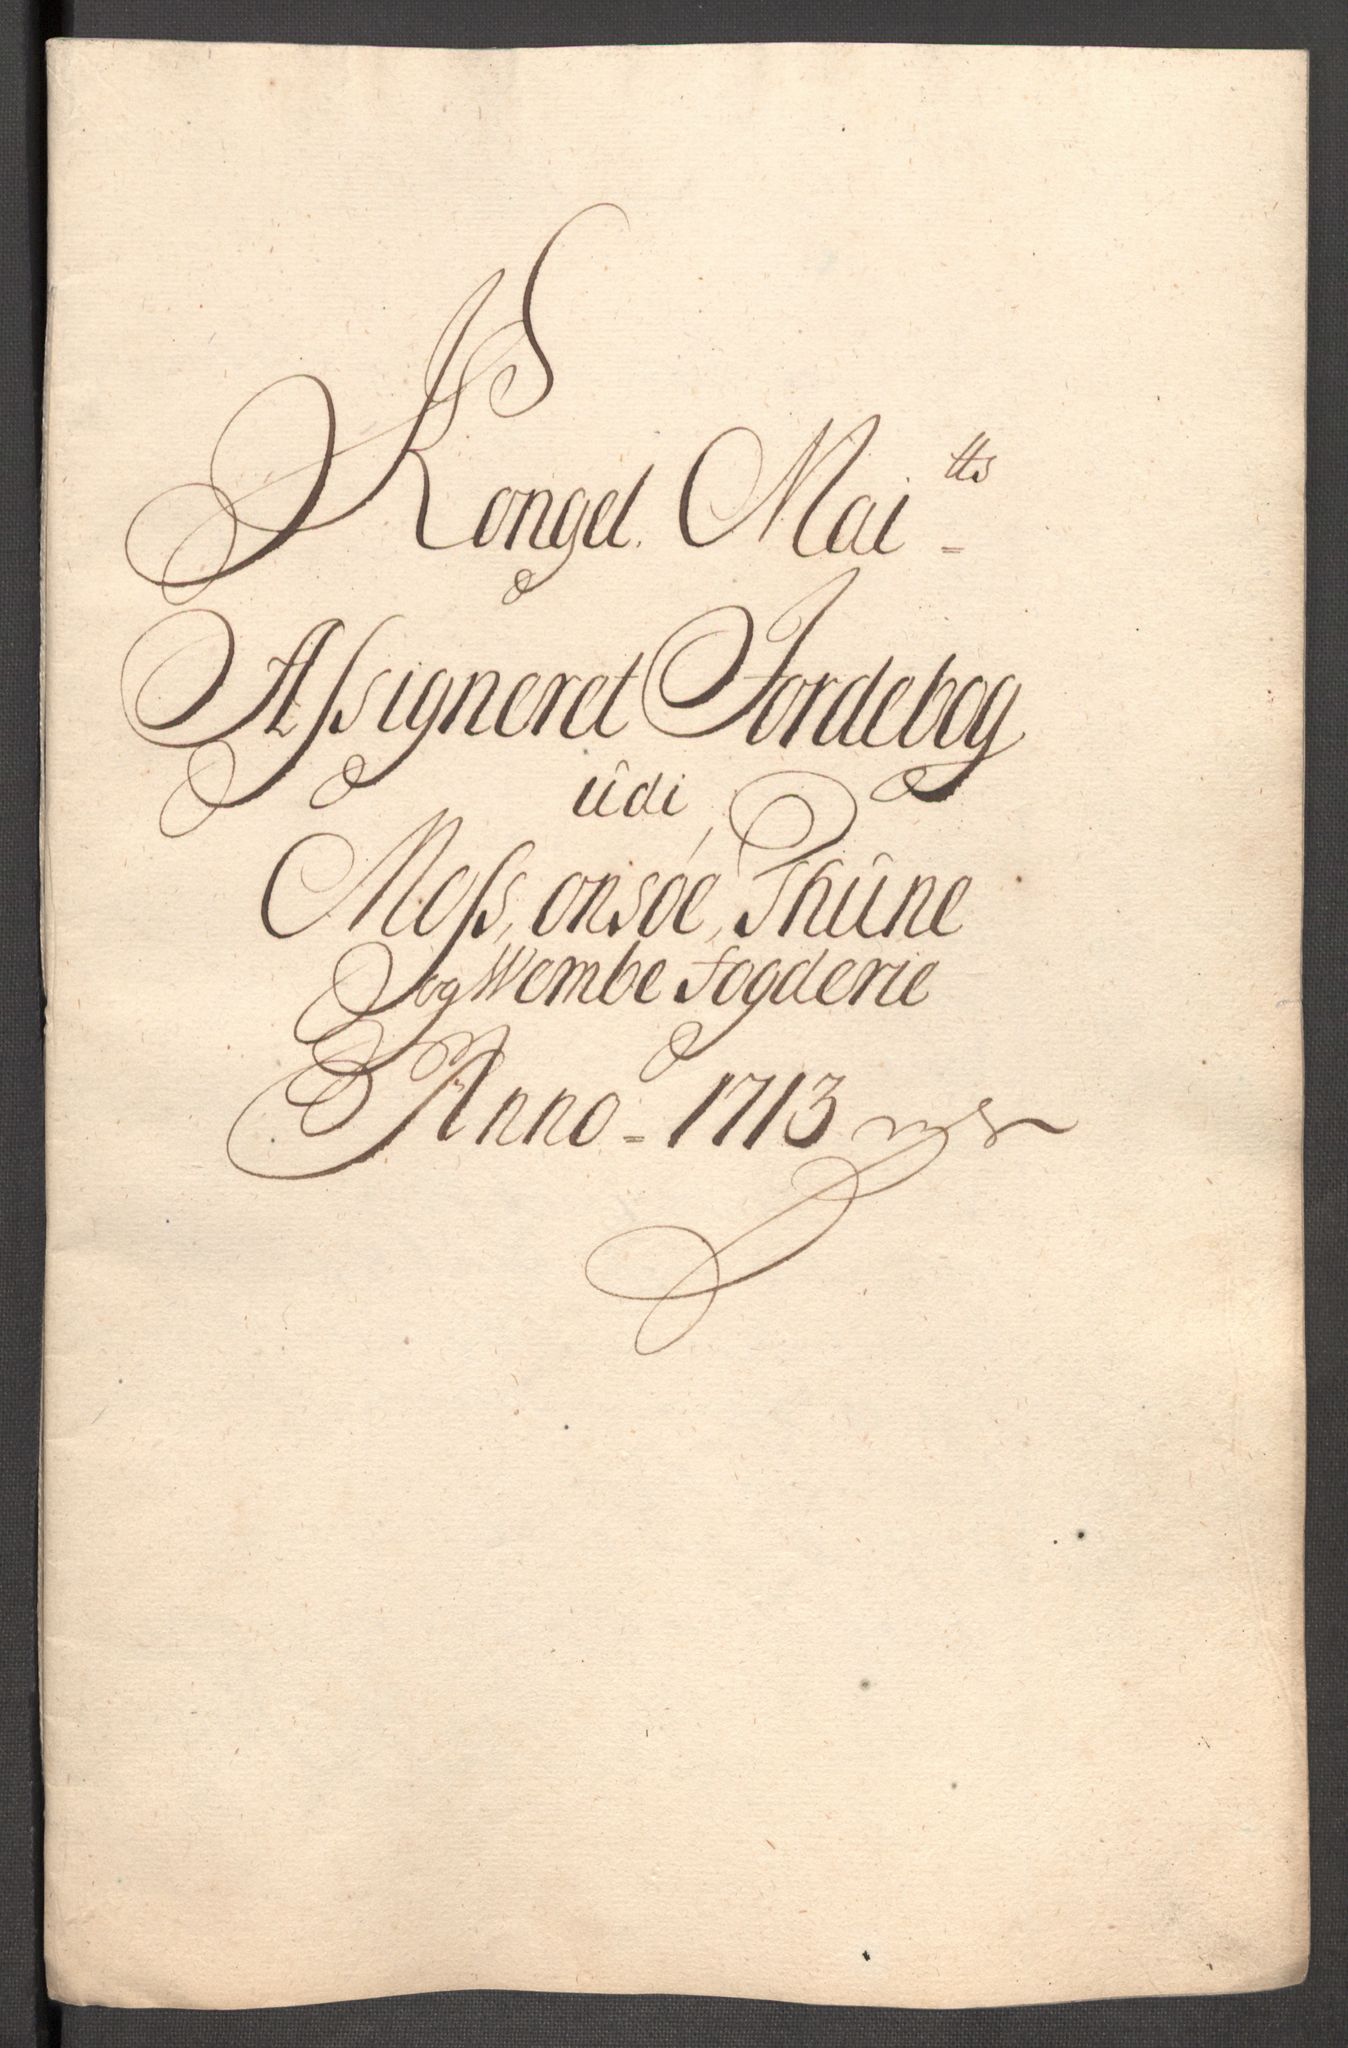 Kongel. Mai^tts
Assigneret Jordebog
udi
Moss, onsøe, Thune
og Wembe fogderie
Anno = 1713